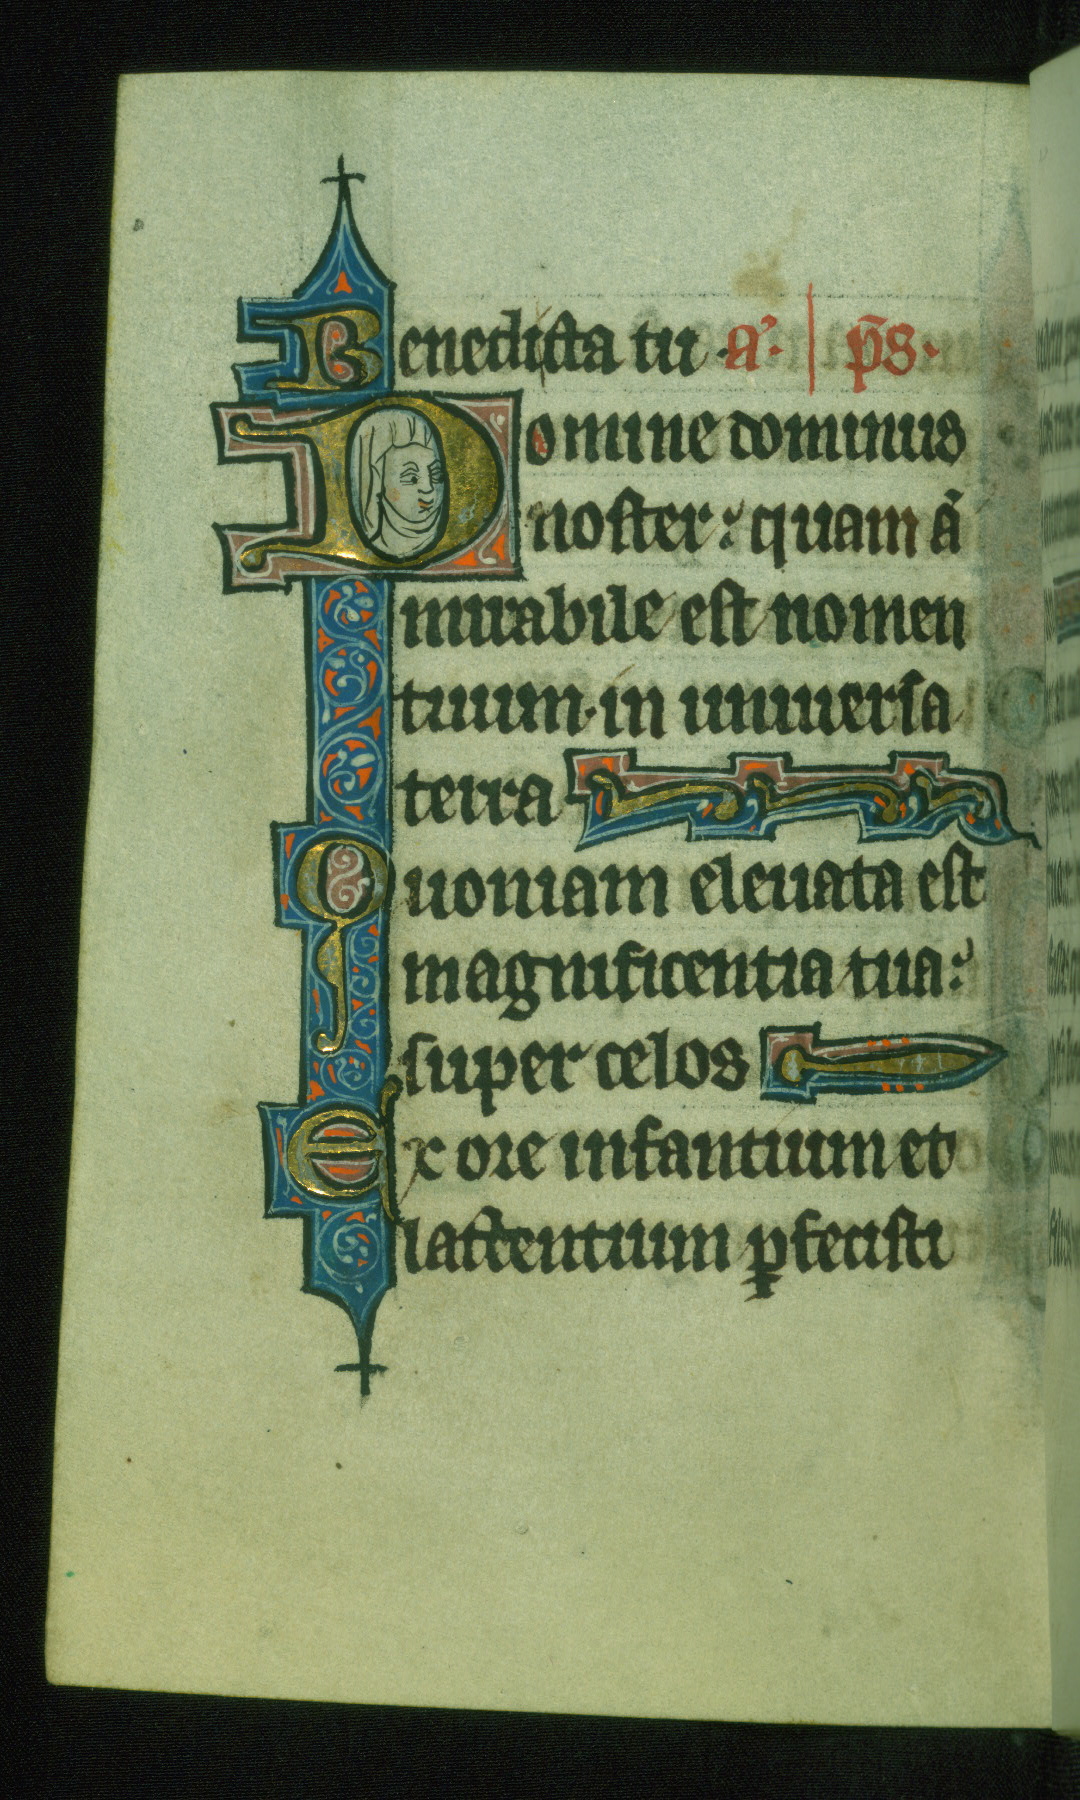 Benedicta tu .a᾽. | p̄s.
Domine dominus
noster: quam ā
mirabile est nomen
tuum. in uniuersa
terra
Quoniam eleuata est
magnificentia tua:
super celos
Ex ore infantium et
lactentium ꝑfecisti